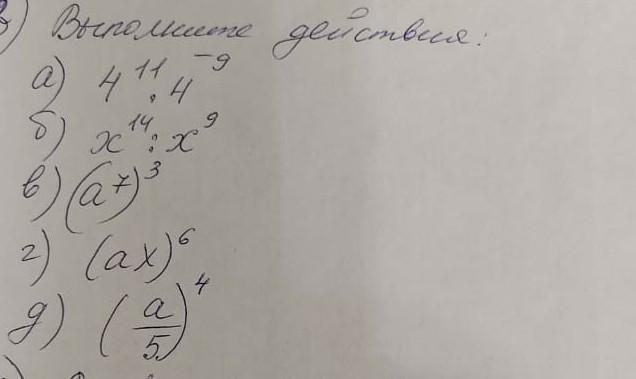 3) Выполните действия:
а) 4¹¹ · 4⁻⁹
б) x¹⁴ : x⁹
в) (a⁷)³
г) (ax)⁶
д) (a/5)⁴